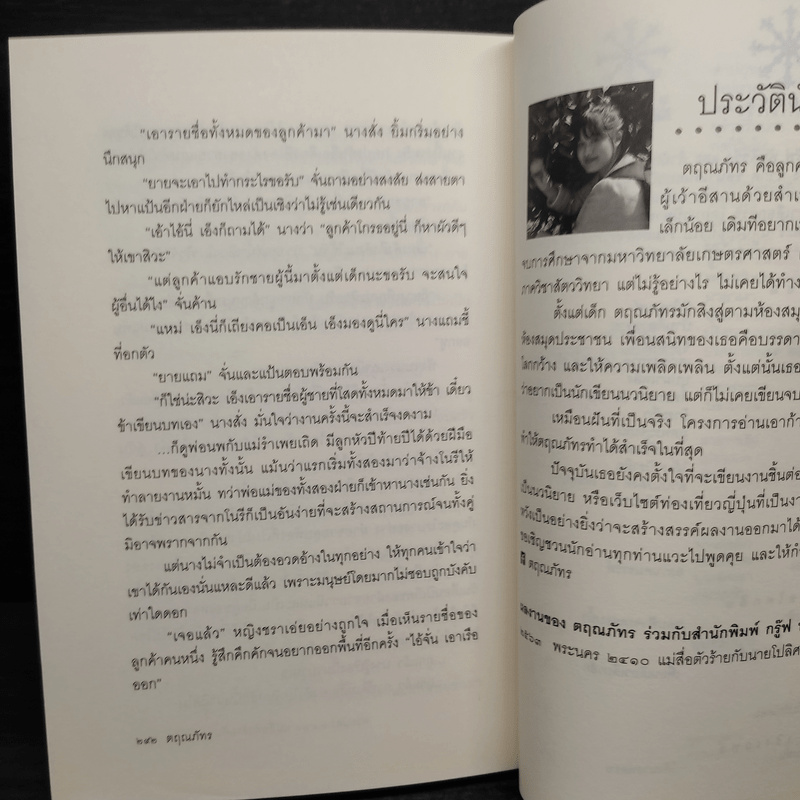 "เอารายชื่อทั้งหมดของลูกค้ามา" นางสั่ง ยิ้มกริ่มอย่าง
นึกสนุก
"ยายจะเอาไปทำกระไรขอรับ" จั่นถามอย่างสงสัย ส่งสายตา
ไปหาแป้นอีกฝ่ายก็ยักไหล่เป็นเชิงว่าไม่รู้เช่นเดียวกัน
"เอ้าไอ้นี่ เอ็งก็ถามได้" นางว่า "ลูกค้าใครรออยู่นี่ ก็หาผัวดีๆ
ให้เขาสิวะ"
"แต่ลูกค้าแอบรักชายผู้นี้มาตั้งแต่เด็กนะขอรับ จะสนใจ
ผู้อื่นได้ไง" จั่นค้าน
"แหม่ เอ็งนี่ก็เถียงคอเป็นเอ็น เอ็งมองดูนี่ใคร" นางแถมชี้
ที่อกตัว
"ยายแถม" จั่นและแป้นตอบพร้อมกัน
"ก็ใช่น่ะสิวะ เอ็งเอารายชื่อผู้ชายที่โสดทั้งหมดมาให้ข้า เดี๋ยว
ข้าเขียนบทเอง" นางสั่ง มั่นใจว่างานครั้งนี้จะสำเร็จงดงาม
...ก็ดูพ่อนพกับแม่รำเพยเถิด มีลูกหัวปีท้ายปีได้ด้วยฝีมือ
เขียนบทของนางทั้งนั้น แม้นว่าแรกเริ่มทั้งสองมาว่าจ้างโนรีให้
ทำลายงานหมั้น ทว่าพ่อแม่ของทั้งสองฝ่ายก็เข้าหานางเช่นกัน ยิ่ง
ได้รับข่าวสารจากโนรีก็เป็นอันง่ายที่จะสร้างสถานการณ์จนทั้งคู่
มิอาจพรากจากกัน
แต่นางไม่จำเป็นต้องอวดอ้างในทุกอย่าง ให้ทุกคนเข้าใจว่า
เขาได้กันเองนั่นแหละดีแล้ว เพราะมนุษย์โดยมากไม่ชอบถูกบังคับ
เท่าใดดอก
"เจอแล้ว" หญิงชราเอ่ยอย่างถูกใจ เมื่อเห็นรายชื่อของ
ลูกค้าคนหนึ่ง รู้สึกคึกคักจนอยากออกพื้นที่อีกครั้ง "ไอ้จั่น เอาเรือ
ออก"
๒๙๒ ตฤณภัทร
ประวัตินั
ตฤณภัทร คือลูกค
ผู้เว้าอีสานด้วยสำเ
เล็กน้อย เดิมทีอยากเ
จบการศึกษาจากมหาวิทยาลัยเกษตรศาสตร์
ภาควิชาสัตววิทยา แต่ไม่รู้อย่างไร ไม่เคยได้ทำง
ตั้งแต่เด็ก ตฤณภัทรมักสิงสู่ตามห้องสมุ
ห้องสมุดประชาชน เพื่อนสนิทของเธอคือบรรดา
โลกกว้าง และให้ความเพลิดเพลิน ตั้งแต่นั้นเธอ
ว่าอยากเป็นนักเขียนนวนิยาย แต่ก็ไม่เคยเขียนจบ
เหมือนฝันที่เป็นจริง โครงการอ่านเอาก้า
ทำให้ตฤณภัทรทำได้สำเร็จในที่สุด
ปัจจุบันเธอยังคงตั้งใจที่จะเขียนงานชิ้นต่อ
เป็นนวนิยาย หรือเว็บไซต์ท่องเที่ยวญี่ปุ่นที่เป็นงา
หวังเป็นอย่างยิ่งว่าจะสร้างสรรค์ผลงานออกมาได้
ขอเชิญชวนนักอ่านทุกท่านแวะไปพูดคุย และให้กำ
ตฤณภัทร
ผลงานของ ตฤณภัทร ร่วมกับสำนักพิมพ์ กรู๊ฟ
๒๕๖๓ พระนคร ๒๔๑๐ แม่สื่อตัวร้ายกับนายโปลิศ